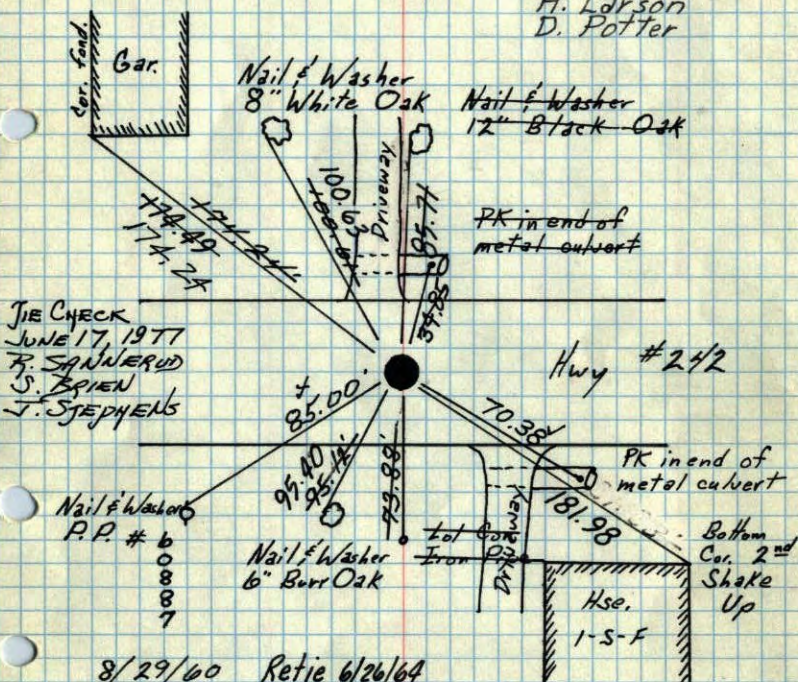 H. Larson
D. Potter
Cor. fond.
Gar.
Nail & Washer
8" White Oak
Nail & Washer
12" Black Oak
Driveway
100.63
100.61
85.71
PK in end of
metal culvert
34.85
174.49
174.24'
174.24
TIE CHECK
JUNE 17, 1977
R. SANNERUD
S. BRIEN
J. STEPHENS
Hwy #242
85.00'
70.38
95.40
95.12'
73.88'
181.98
PK in end of
metal culvert
Nail & Washer
P.P. # 6
0
8
8
7
Nail & Washer
6" Burr Oak
Lot Cor.
Iron Pipe
Driveway
Bottom
Cor. 2nd
Shake
Up
Hse.
1-S-F
8/29/60 Retie 6/26/64